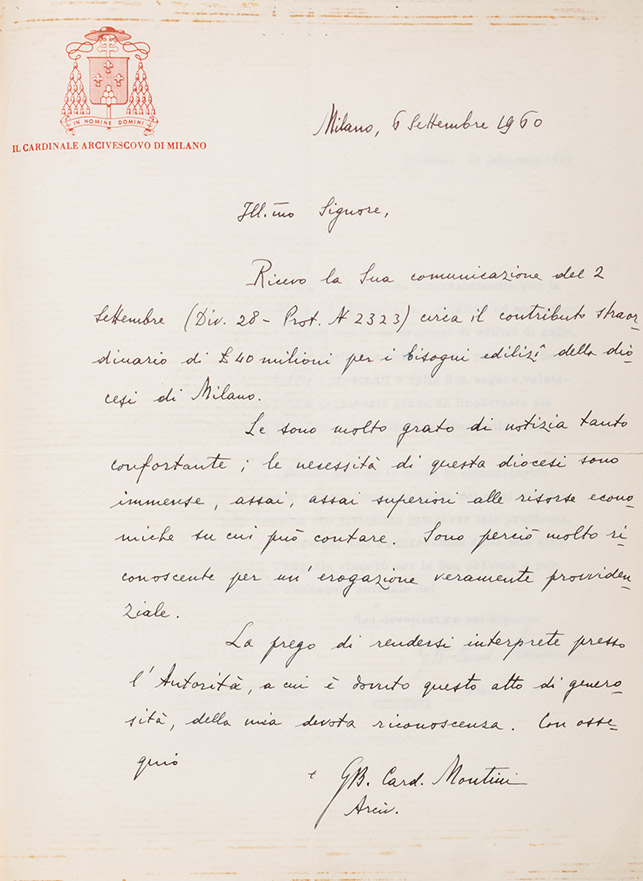 IN NOMINE DOMINI
IL CARDINALE ARCIVESCOVO DI MILANO
Milano, 6 Settembre 1960
Ill.mo Signore,
Ricevo la Sua comunicazione del 2
Settembre (Div. 28 - Prot. N 2323) circa il contributo straor
dinario di £ 40 milioni per i bisogni edilizî della dio-
cesi di Milano.
Le sono molto grato di notizia tanto
confortante; le necessità di questa diocesi sono
immense, assai, assai superiori alle risorse econo
miche su cui può contare. Sono perciò molto ri
conoscente per un' erogazione veramente provviden
ziale.
La prego di rendersi interprete presso
l'Autorità, a cui è dovuto questo atto di genero
sità, della mia devota riconoscenza. Con osse-
quio
+ GB. Card. Montini
Arciv.